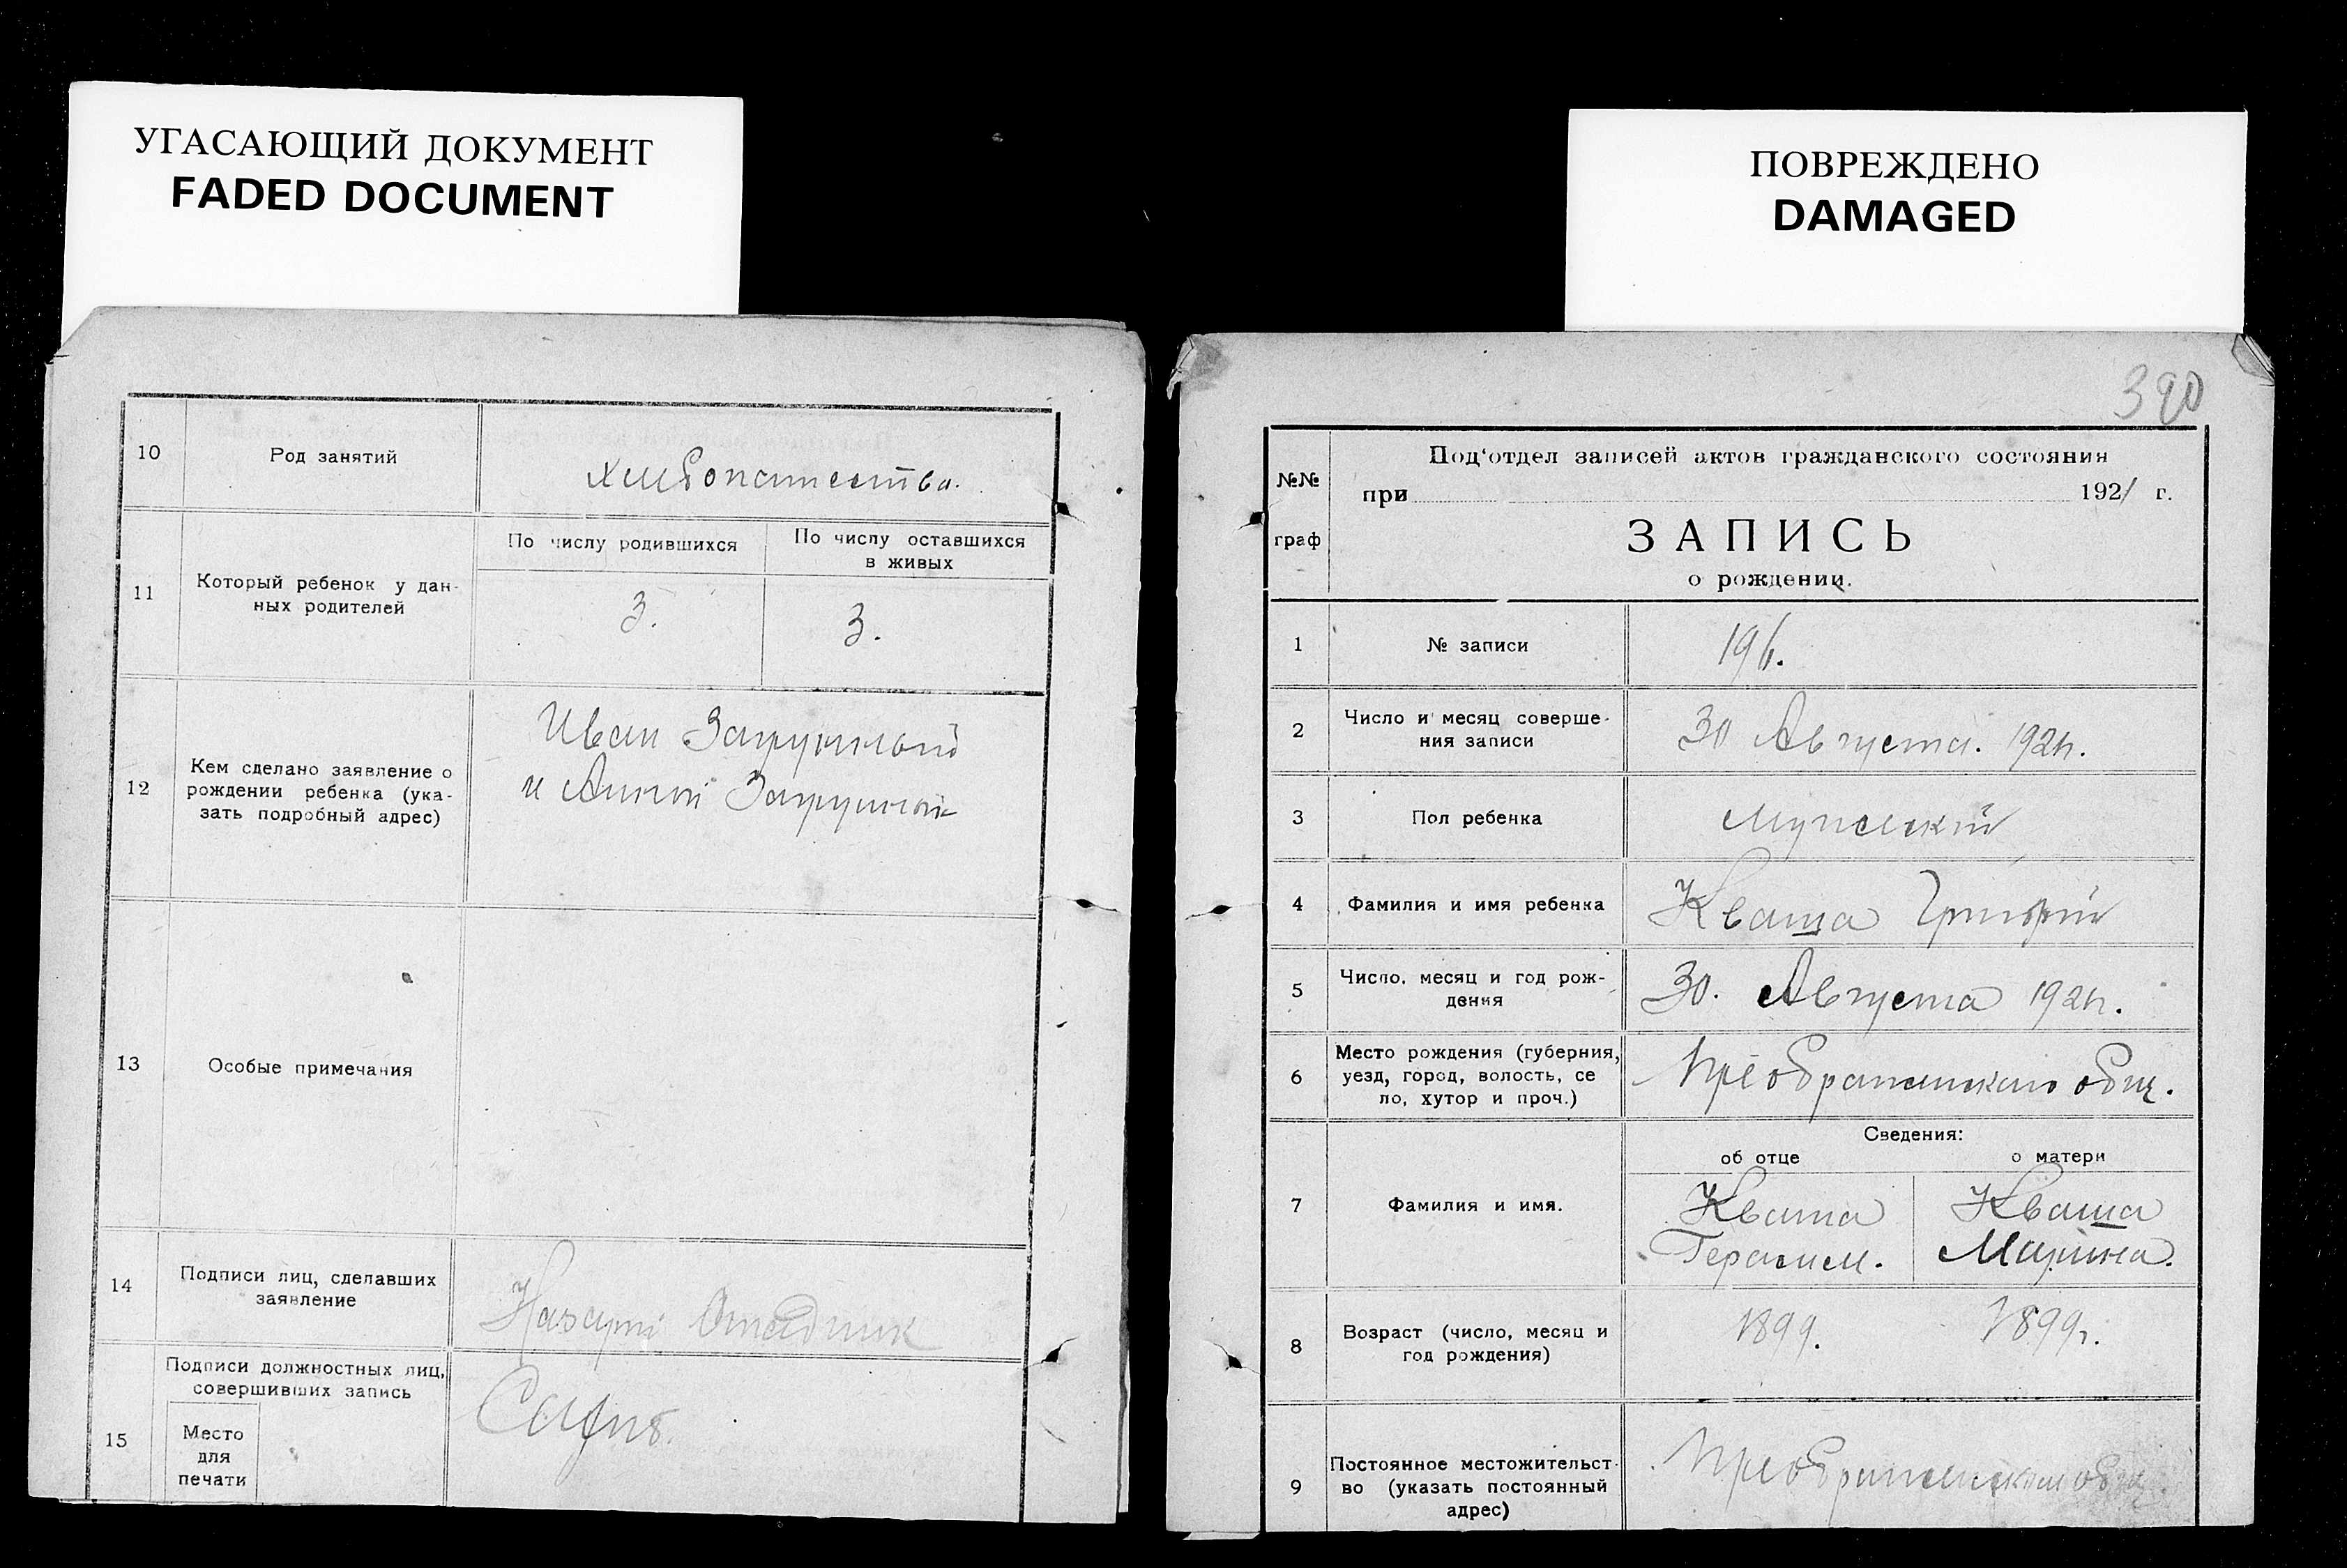 УГАСАЮЩИЙ ДОКУМЕНТ
FADED DOCUMENT
10
Род занятий
хлебопашества.
11
Который ребенок у дан-
ных родителей
По числу родившихся
По числу оставшихся
в живых
3.
3.
12
Кем сделано заявление о
рождении ребенка (ука-
зать подробный адрес)
Иван
и Анной
13
Особые примечания
14
Подписи лиц, сделавших
заявление
15
Подписи должностных лиц,
совершивших запись
Место
для
печати
ПОВРЕЖДЕНО
DAMAGED
390
№№
граф
Под‘отдел записей актов гражданского состояния
при 1921 г.
ЗАПИСЬ
о рождении.
1
№ записи
196.
2
Число и месяц соверше-
ния записи
30 Августа. 1921г.
3
Пол ребенка
Мужский
4
Фамилия и имя ребенка
Кваша Григорий
5
Число, месяц и год рож-
дения
30. Августа 1921г.
6
Место рождения (губерния,
уезд, город, волость, се
ло, хутор и проч.)
Преображенскаго общ.
Сведения:
об отце
о матери
7
Фамилия и имя.
Кваша
Герасим.
Кваша
Марина.
8
Возраст (число, месяц и
год рождения)
1899.
1899г.
9
Постоянное местожительст-
во (указать постоянный
адрес)
Преображенскаго общ.